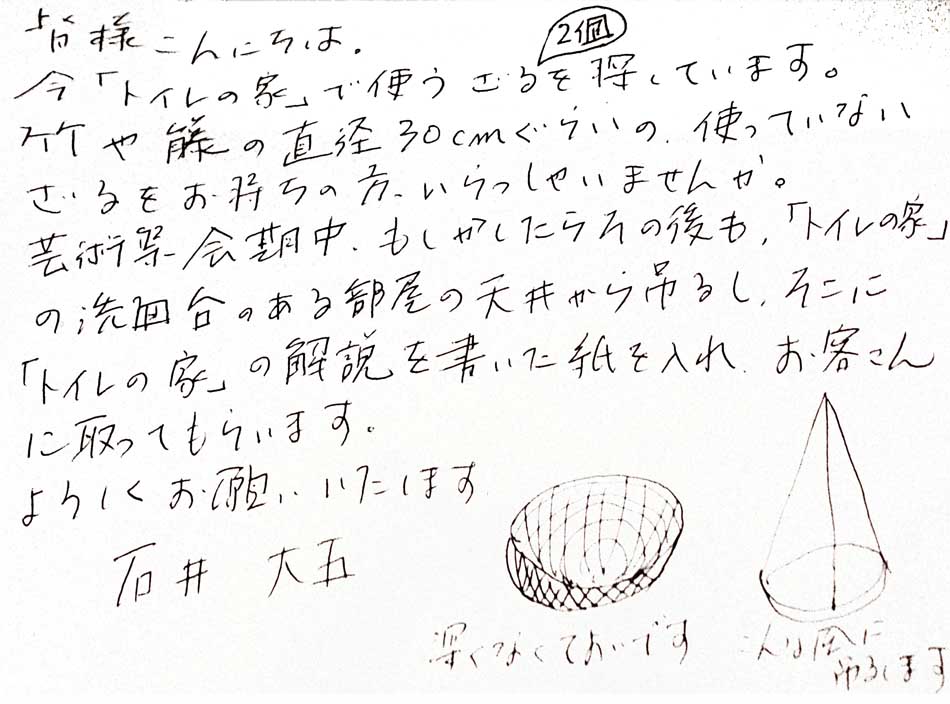 皆様こんにちは。
2個
今「トイレの家」で使うざるを探しています。
竹や籐の直径30cmぐらいの、使っていない
ざるをお持ちの方、いらっしゃいませんか。
芸術祭会期中、もしかしたらその後も、「トイレの家」
の洗面台のある部屋の天井から吊るし、そこに
「トイレの家」の解説を書いた紙を入れ、お客さん
に取ってもらいます。
よろしくお願いいたします
石井 大五
深くなくてよいです
こんな風に
吊るします